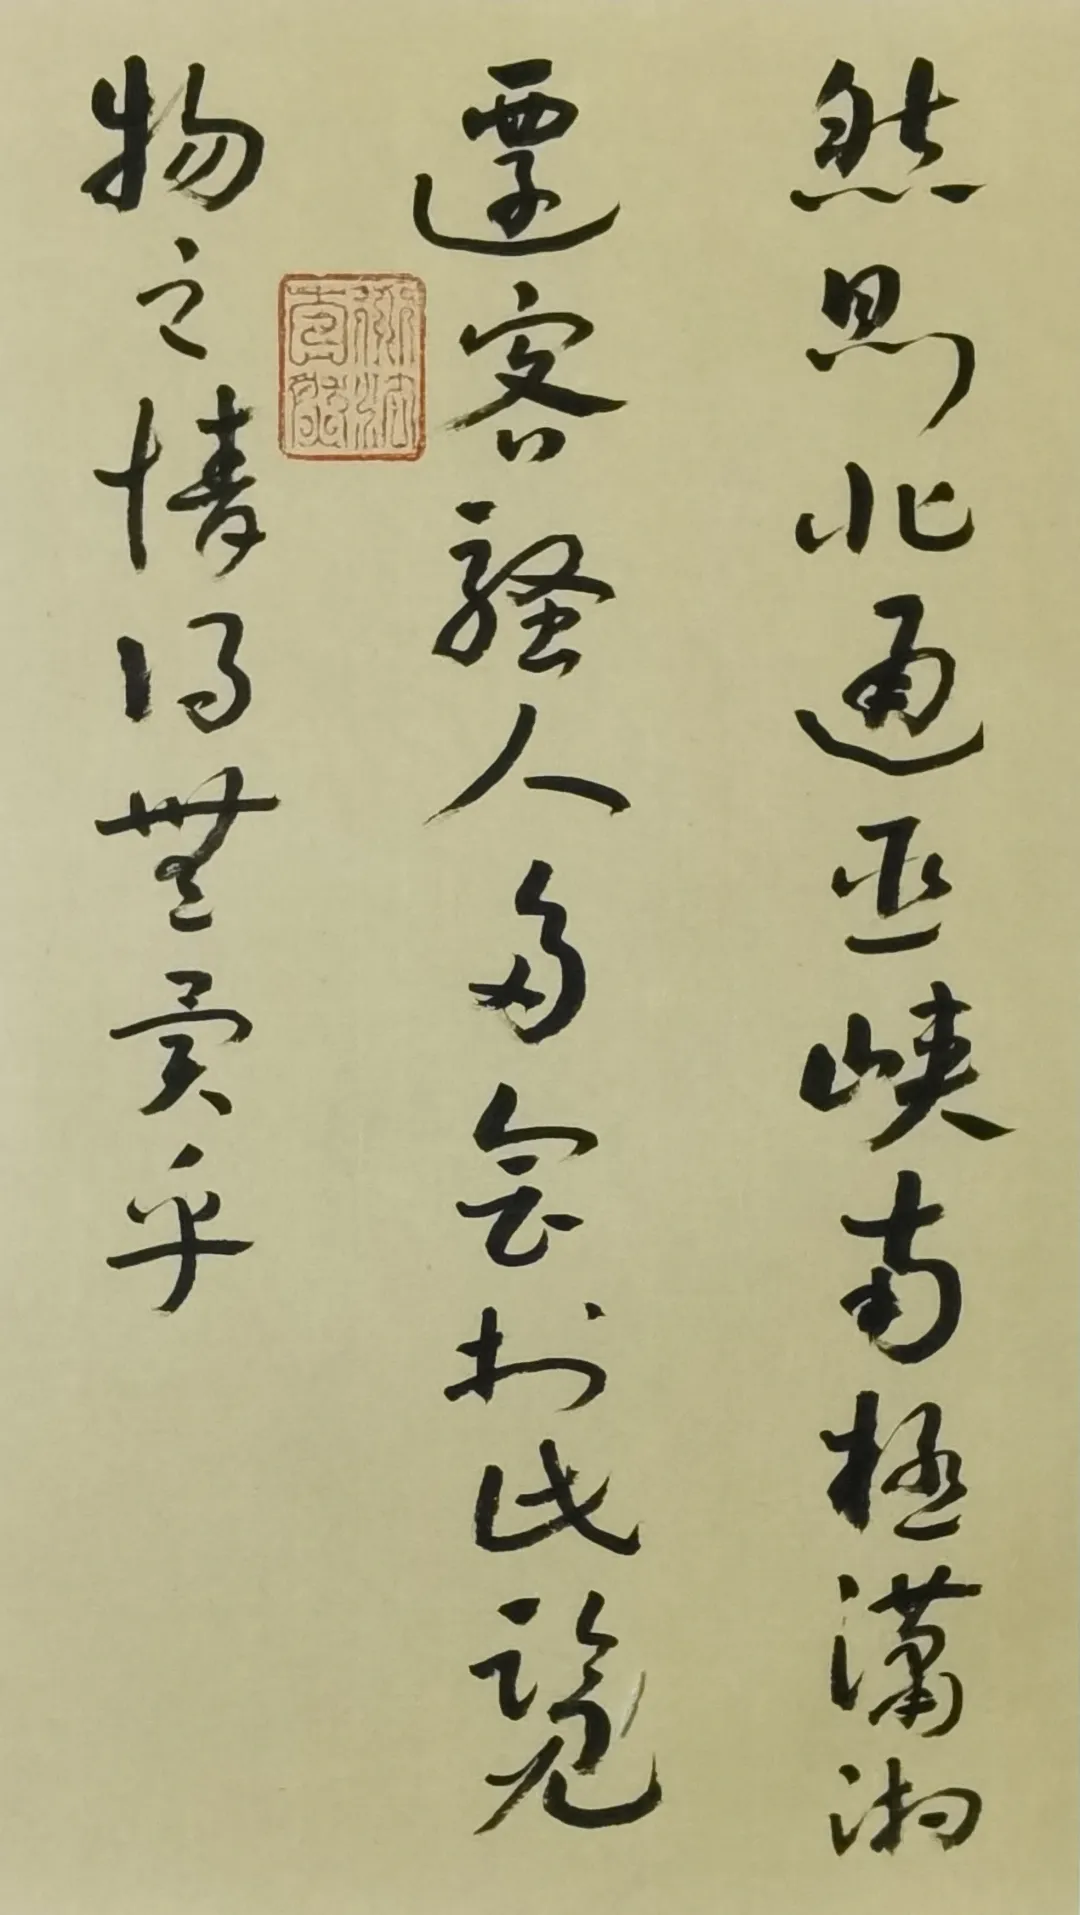 然則北通巫峽南極瀟湘
遷客騷人多會於此覽
物之情得無異乎